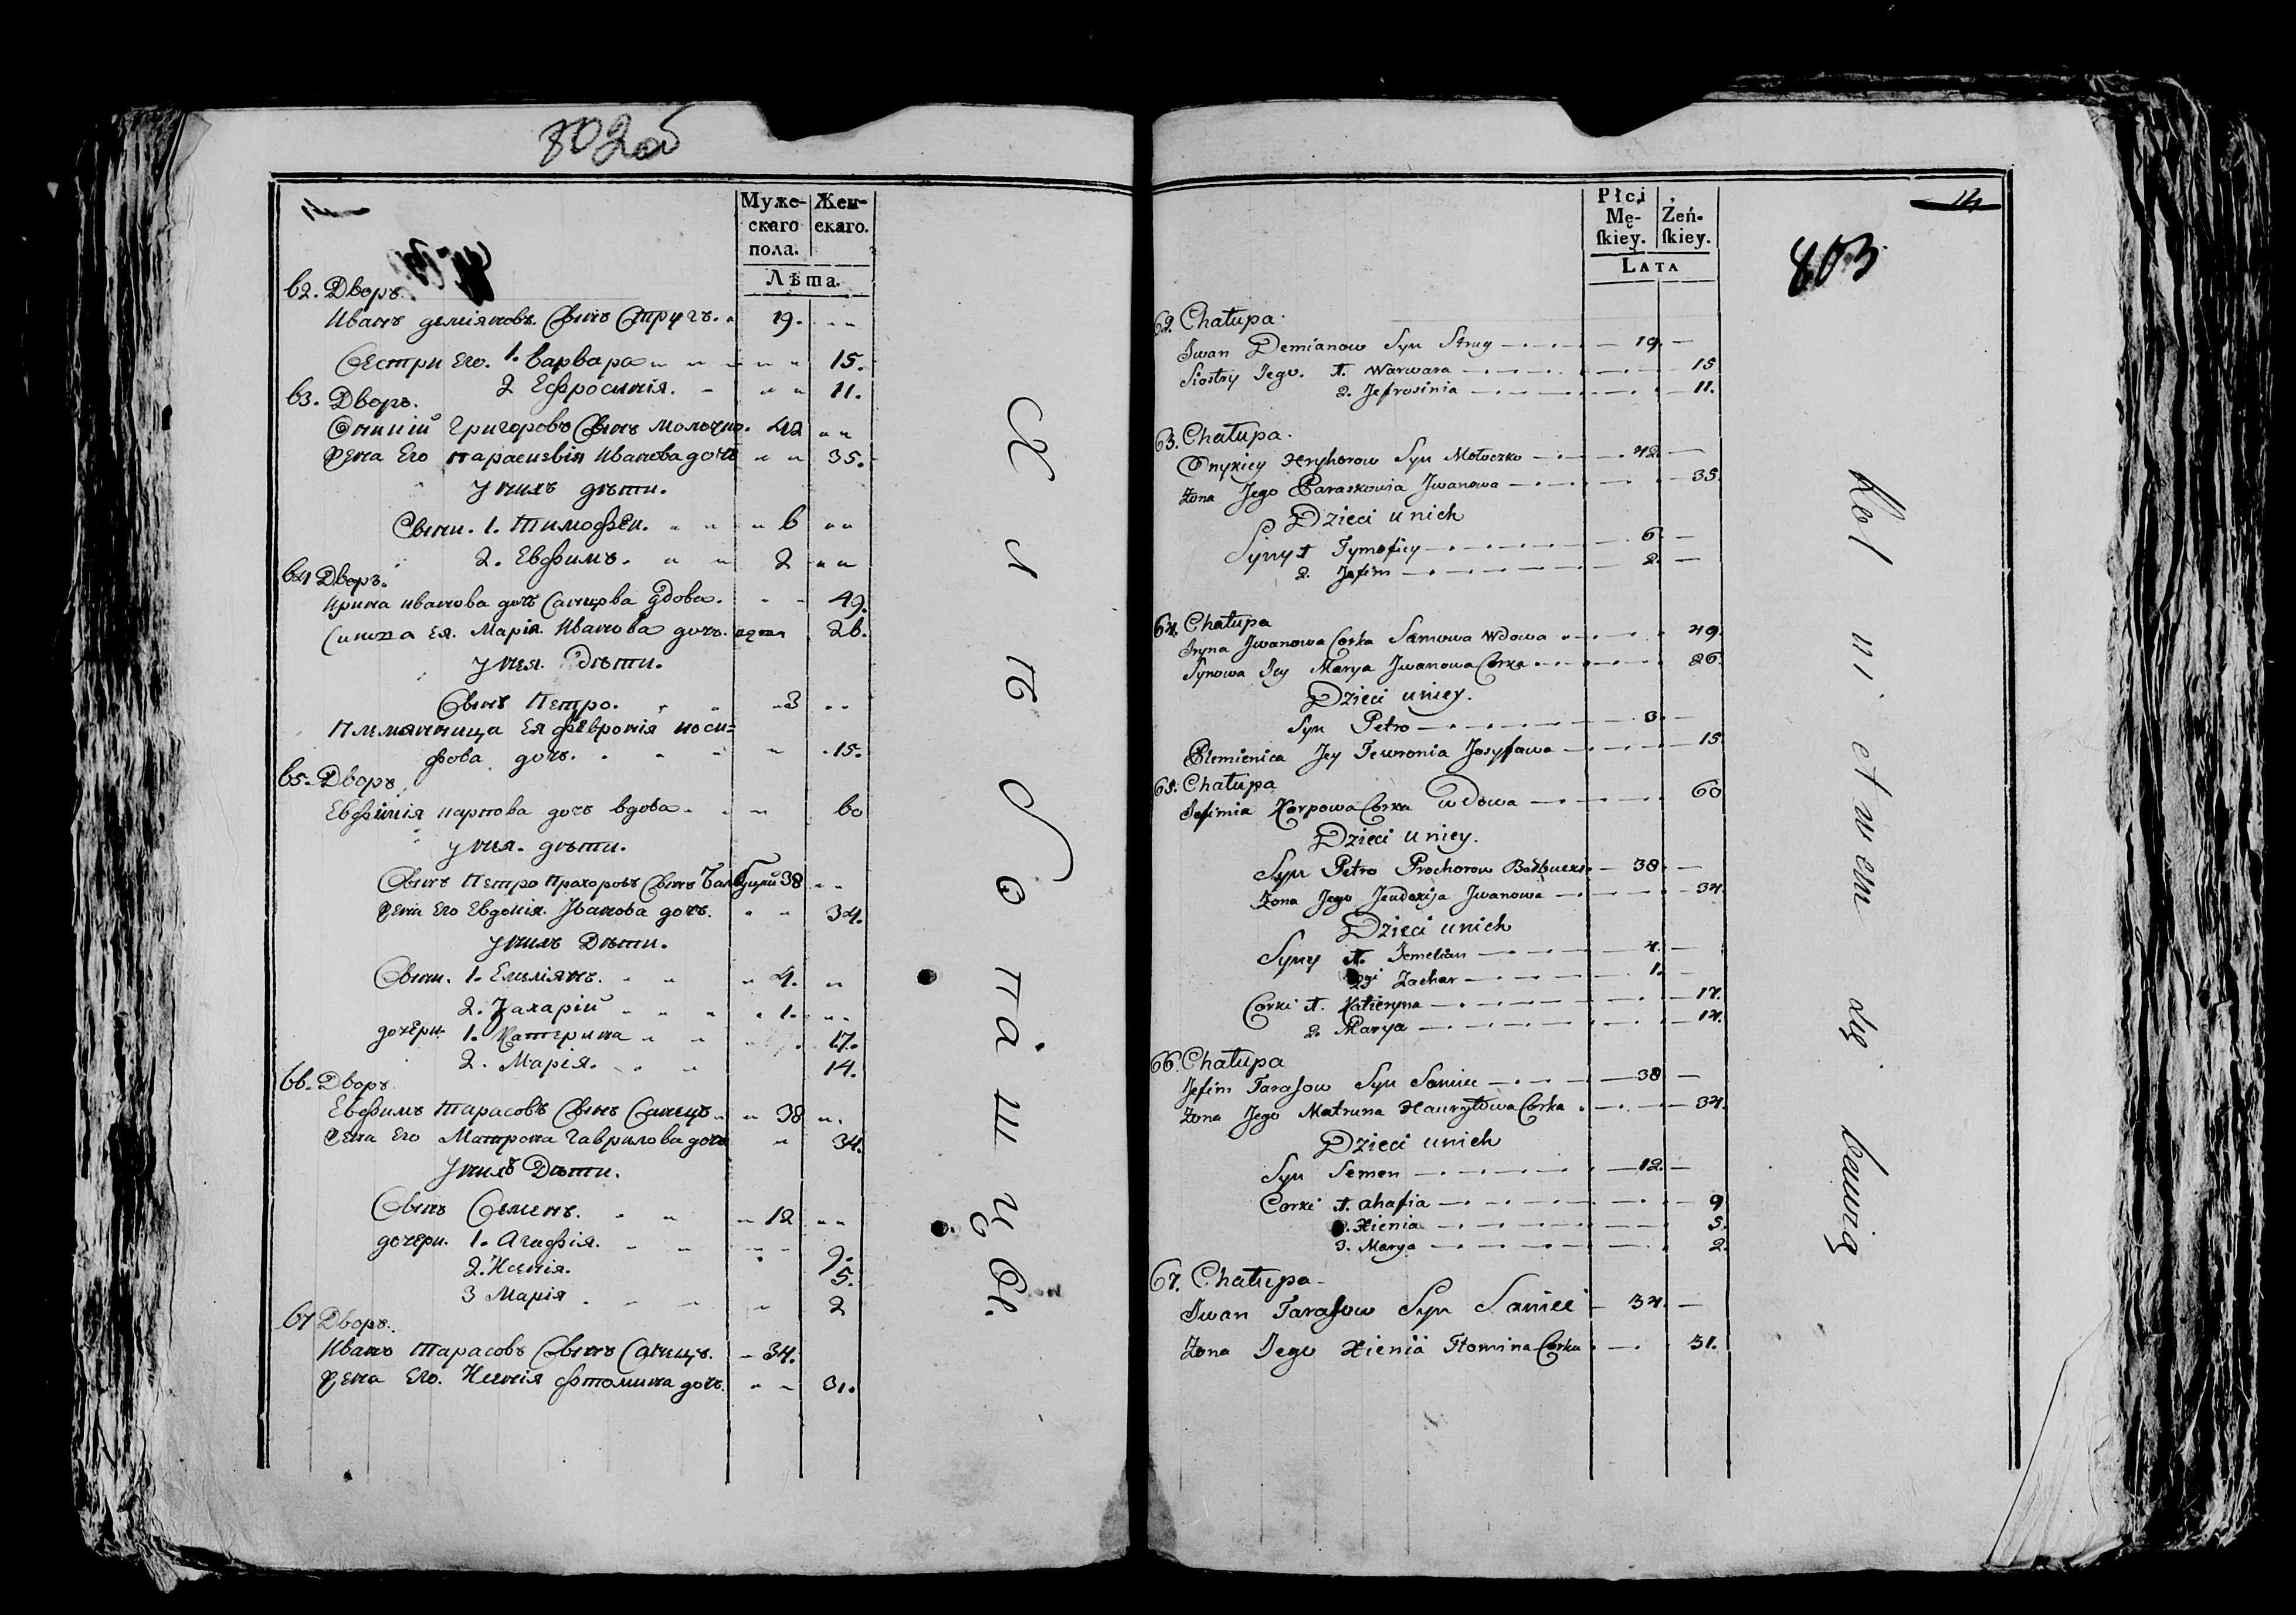 802об
Муже-
скаго
пола.
Жен-
скаго.
Лѣта.
62. Дворъ.
Иванъ деміяновъ Сынъ Стругъ. 19.
Сестри Его. 1. Варвара 15.
2 Ефросинія. 11.
63. Дворъ.
Оникій Григоровъ Сынъ Молочко. 42
Жена Его парасковія Иванова дочь 35.
у нихъ дѣти.
Сыни. 1. Тимофѣй. 6
2. Евфимъ. 2
64 Дворъ.
Ирина иванова дочь вдова. 49.
Его Ея. Марія. Иванова дочь. 26.
у нея. Дѣти.
Сынъ Петро. 3
Племянница Ея февронія иоси=
фова дочь. 15.
65. Дворъ
Евфимія карпова дочь вдова 60
у нея. дѣти.
Сынъ Петро Прохоровъ Сынъ 38
Жена Его Евдокія. Иванова дочь. 34.
у нихъ Дѣти.
Сыни. 1. Емеліянъ. 4.
2. Захарій 1.
дочери. 1. Катерина 17.
2. Марія. 14.
66. Дворъ
Евфимъ Тарасовъ Сынъ Санецъ 38
Жена Его Матрона Гаврилова дочь 34.
у нихъ Дѣти.
Сынъ Семенъ. 12
дочери. 1. Агафія. 9.
2. Ксенія. 5.
3 Марія 2
67 Дворъ.
Иванъ Тарасовъ Сынъ Санецъ. 34.
Жена Его. Ксенія фтомина дочь. 31.
14
803
Płci
Mę-
ſkiey.
Żeń-
ſkiey.
Lata
62. Chałupa.
Jwan Demianow Syn Strug 19.
Siostry Jego. 1. Warwara 15
2. Jefrosinia 11.
63. Chałupa.
Onykiey Hryhorow Syn Mołoczko 42.
Zona Jego Paraskowia Jwanowa 35.
Dzieci u nich
Syny 1 Tymofiey 6.
2. Jefim 2.
64. Chałupa
Iryna Jwanowa Corka Sancowa Wdowa 49.
Synowa Jey Marya Jwanowa Corka 26.
Dzieci u niey.
Syn Petro 3.
Plemienica Jey Fewronia Josyfowa 15
65. Chałupa
Jefimia Karpowa Corka wdowa 60
Dzieci u niey.
Syn Petro Prochorow 38.
Zona Jego Jeudokija Jwanowa 34.
Dzieci u nich
Syny 1. Jemelian 4.
2gi Zachar 1.
Corki 1. Katieryna 17.
2. Marya 14.
66. Chałupa
Jefim Taraſow Syn Saniec 38
Zona Jego Matruna Hauryłowa Corka 34.
Dzieci u nich
Syn Semen 12.
Corki 1. ahafia 9
2. Xienia 5.
3. Marya 2.
67. Chałupa
Jwan Taraſow Syn Saniec 34.
Zona Jego Xieniä Ftomina Corka 31.